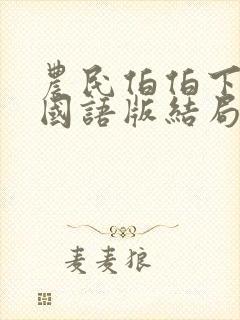 農民伯伯下
國語版結局
麦麦狼